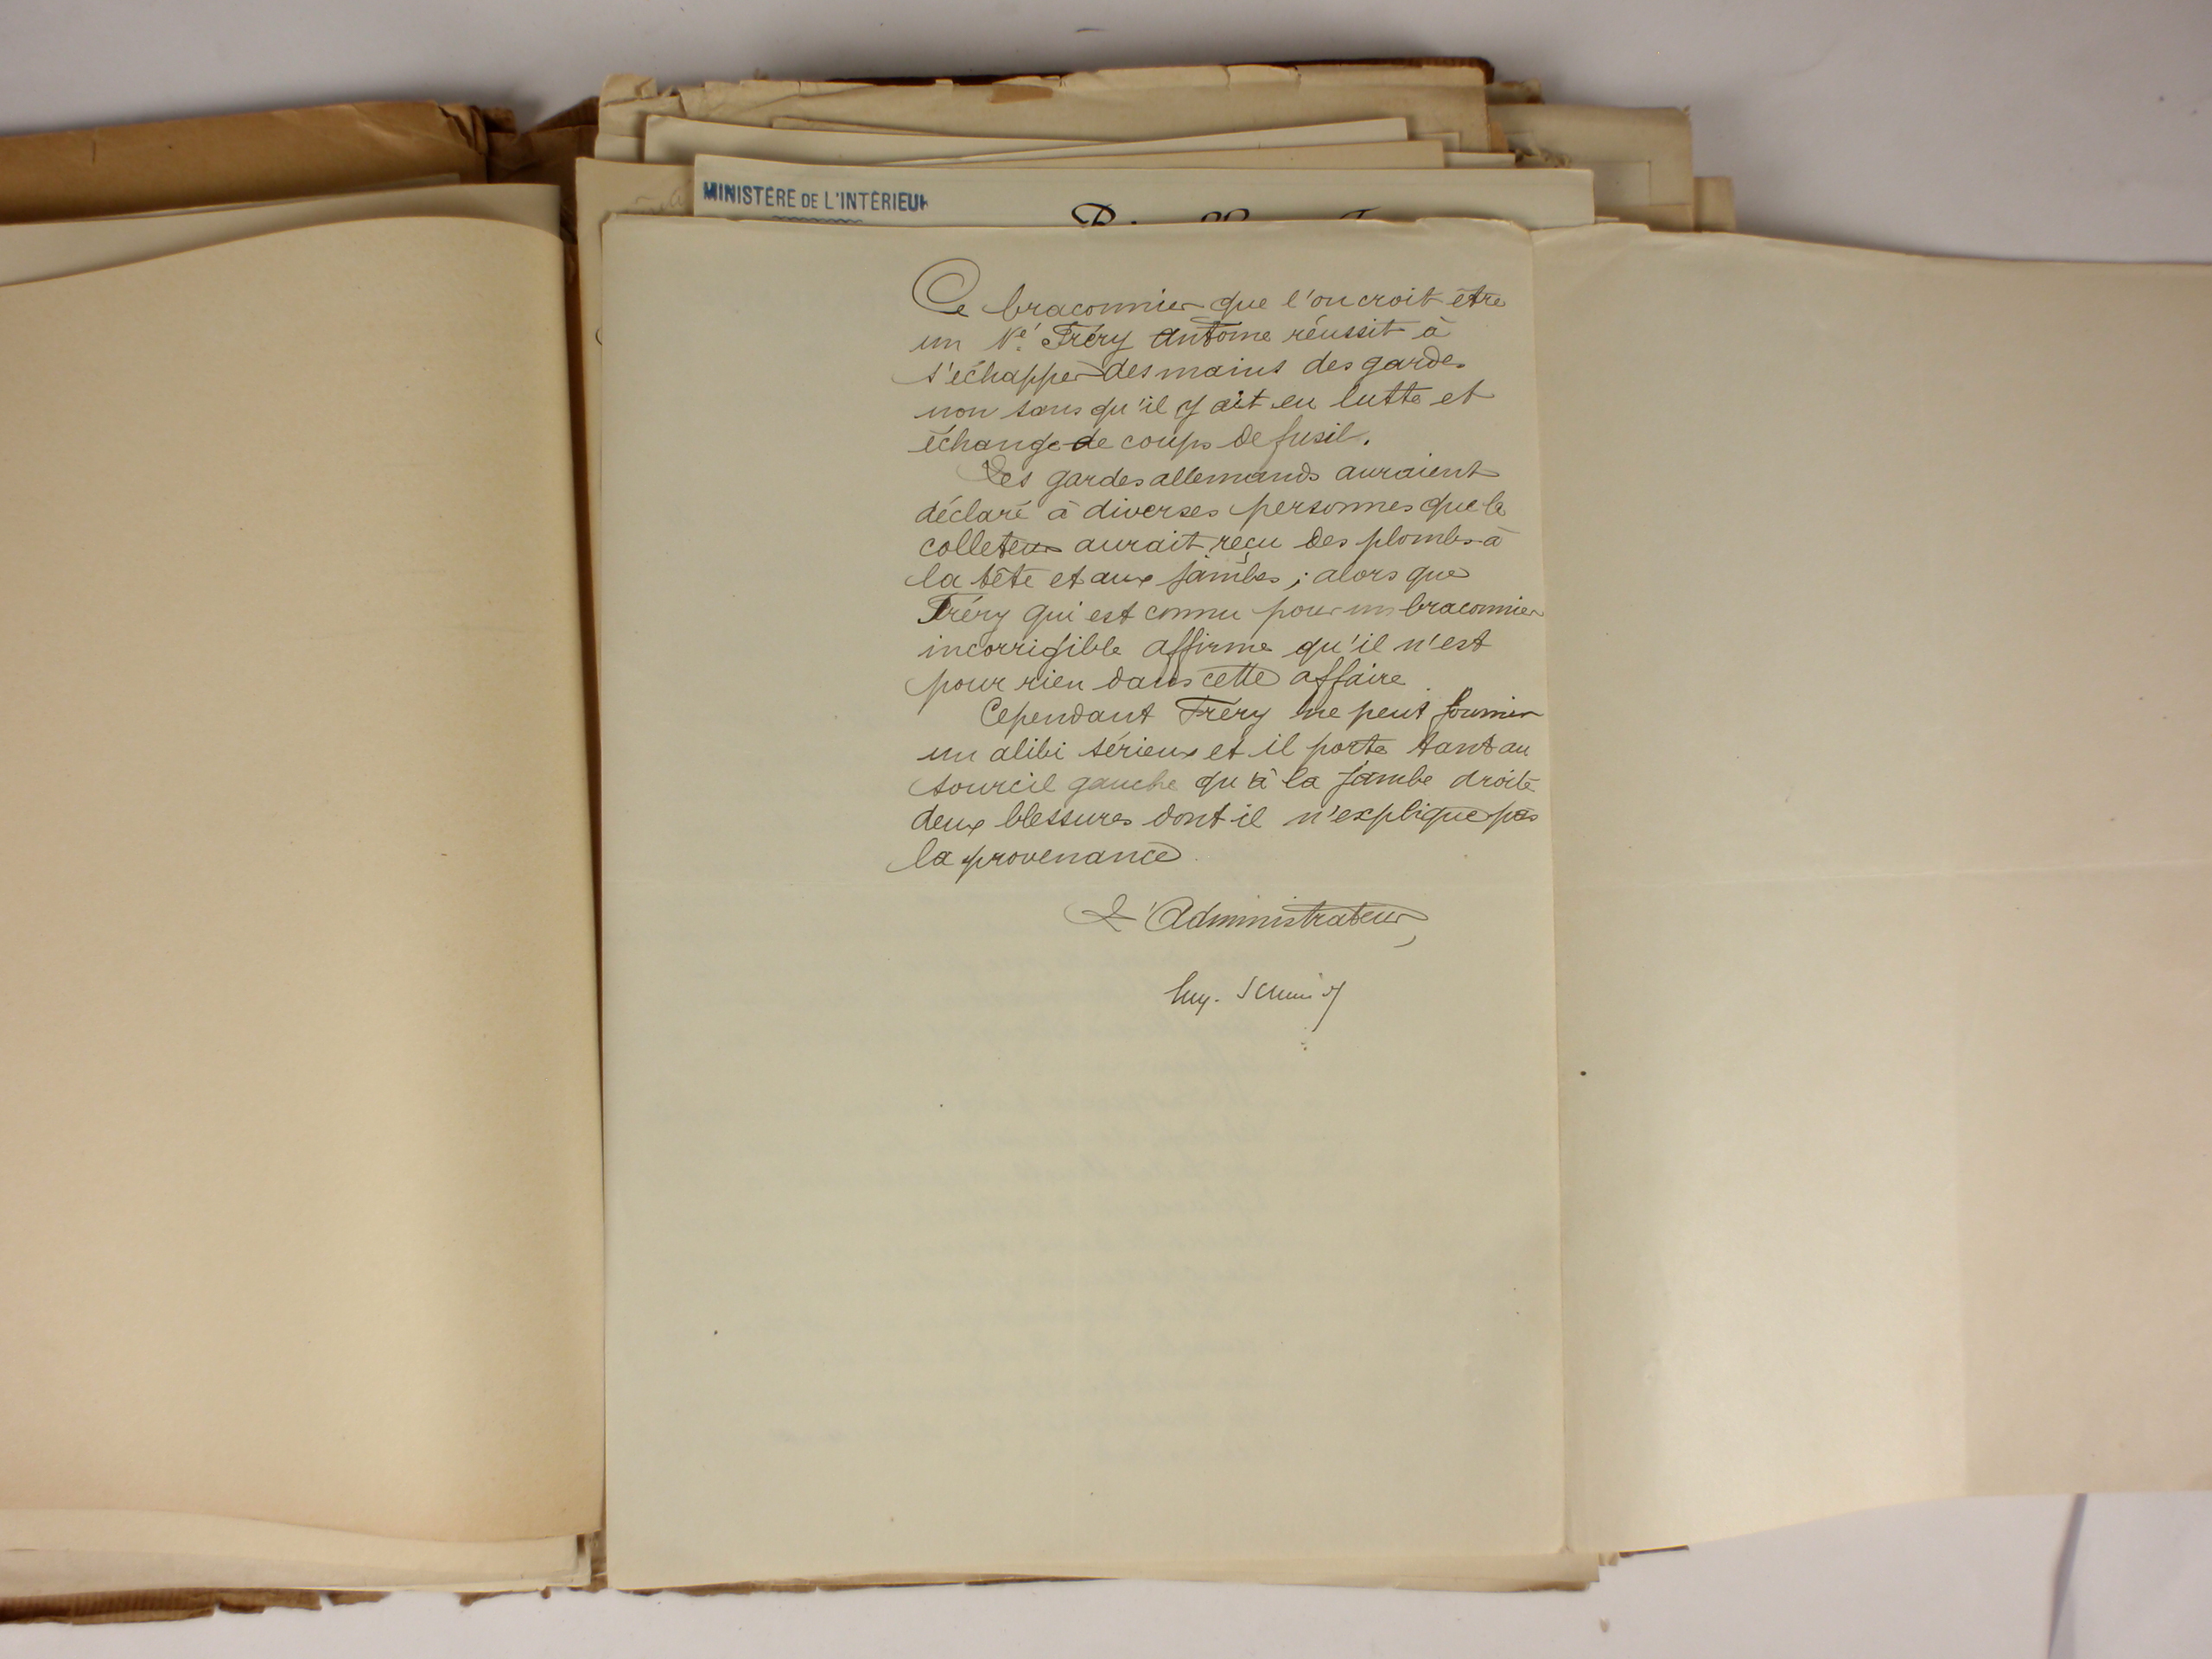 MINISTÈRE DE L'INTÉRIEUR
Ce braconnier que l'on croit être
un Né Fréry Antoine réussit à
s'échapper des mains des gardes
non sans qu'il y ait eu lutte et
échange de coups de fusil.
Les gardes allemands auraient
déclaré à diverses personnes que le
colleteur aurait reçu des plombs à
la tête et aux jambes ; alors que
Fréry qui est connu pour un braconnier
incorrigible affirme qu'il n'est
pour rien dans cette affaire.
Cependant Fréry ne peut fournir
un alibi sérieux et il porte tant au
sourcil gauche qu'à la jambe droite
deux blessures dont il n'explique pas
la provenance.
L'Administrateur,